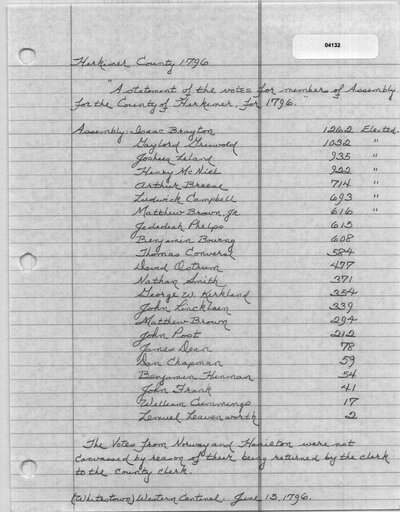 04132
Herkimer County 1796
"A statement of the votes for members of Assembly
for the County of Herkimer, for 1796."
Assembly: Isaac Brayton 1262 Elected
Gaylord Griswold 1032 "
Joshua Leland 935 "
Henry McNiel 922 "
Arthur Breese 714 "
Ludwick Campbell 693 "
Matthew Brown, Jr. 616 "
Jedediah Phelps 615
Benjamin 608
Thomas Converse 584
David Ostrum 477
Nathan Smith 371
George W. Kirkland 354
John Lincklaen 339
Matthew Brown 294
John Post 212
James Dean 78
Dan Chapman 59
Benjamin Hinman 54
John Frank 41
William Cummings 17
Lemuel Leavenworth 2
The Votes from Norway and Hamilton were not
canvassed by reason of their being returned by the clerk
to the county clerk.
(Whitestown) Western Centinel. June 15, 1796.